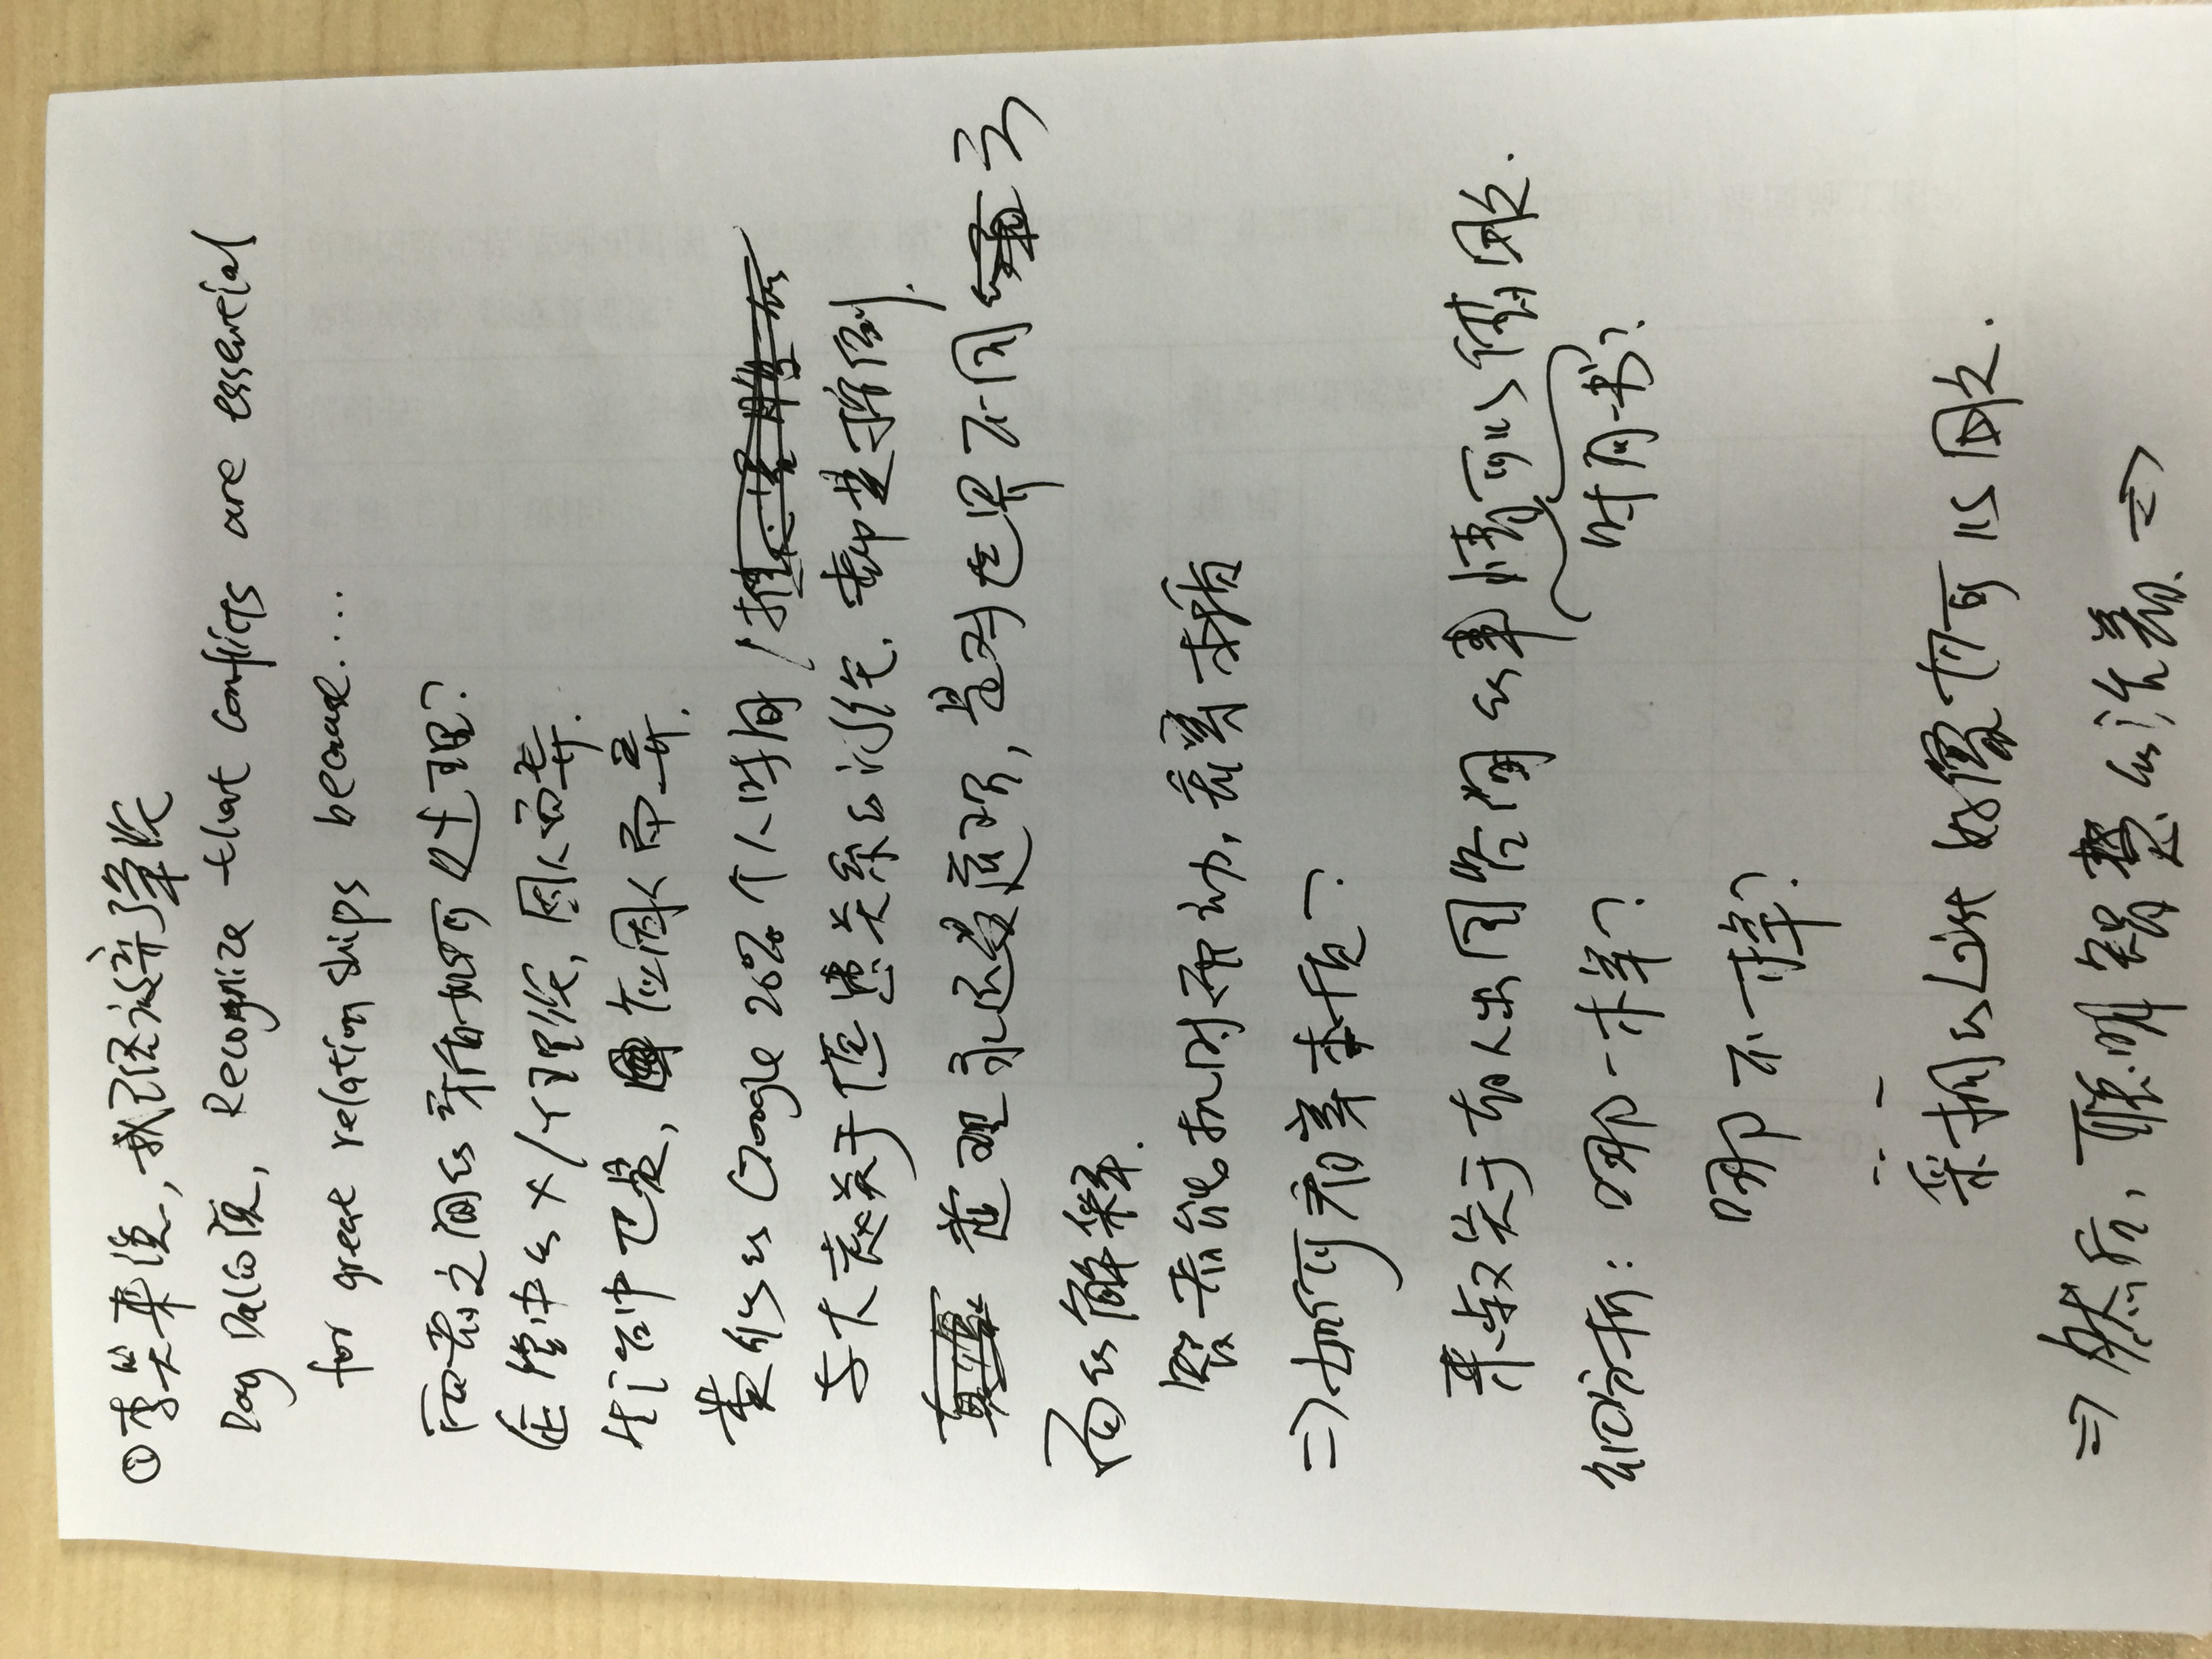 ①李笑来说,我已经放弃了争论
Ray Dalio说, Recognize that conflicts are essential
for great relationships because....
两者之间的矛盾如何处理?
企管中的X/Y理论,因人而异.
生活中也是,应因人而异.
黄的 Google 20%个人时间
与大 关于 关系的讨论.都是 例.
道理永远是道理,是对世界不同方
面的解释.
智者能机时而动,看穿本质
=>如何看穿本质?
来叔关于 人出国咨询的事情可以借用之.
时间一书?
细分析: 哪一样?
哪不一样?
.. —
采铜的List好像也可以用之.
=>然后,聪明智慧的活着. =>